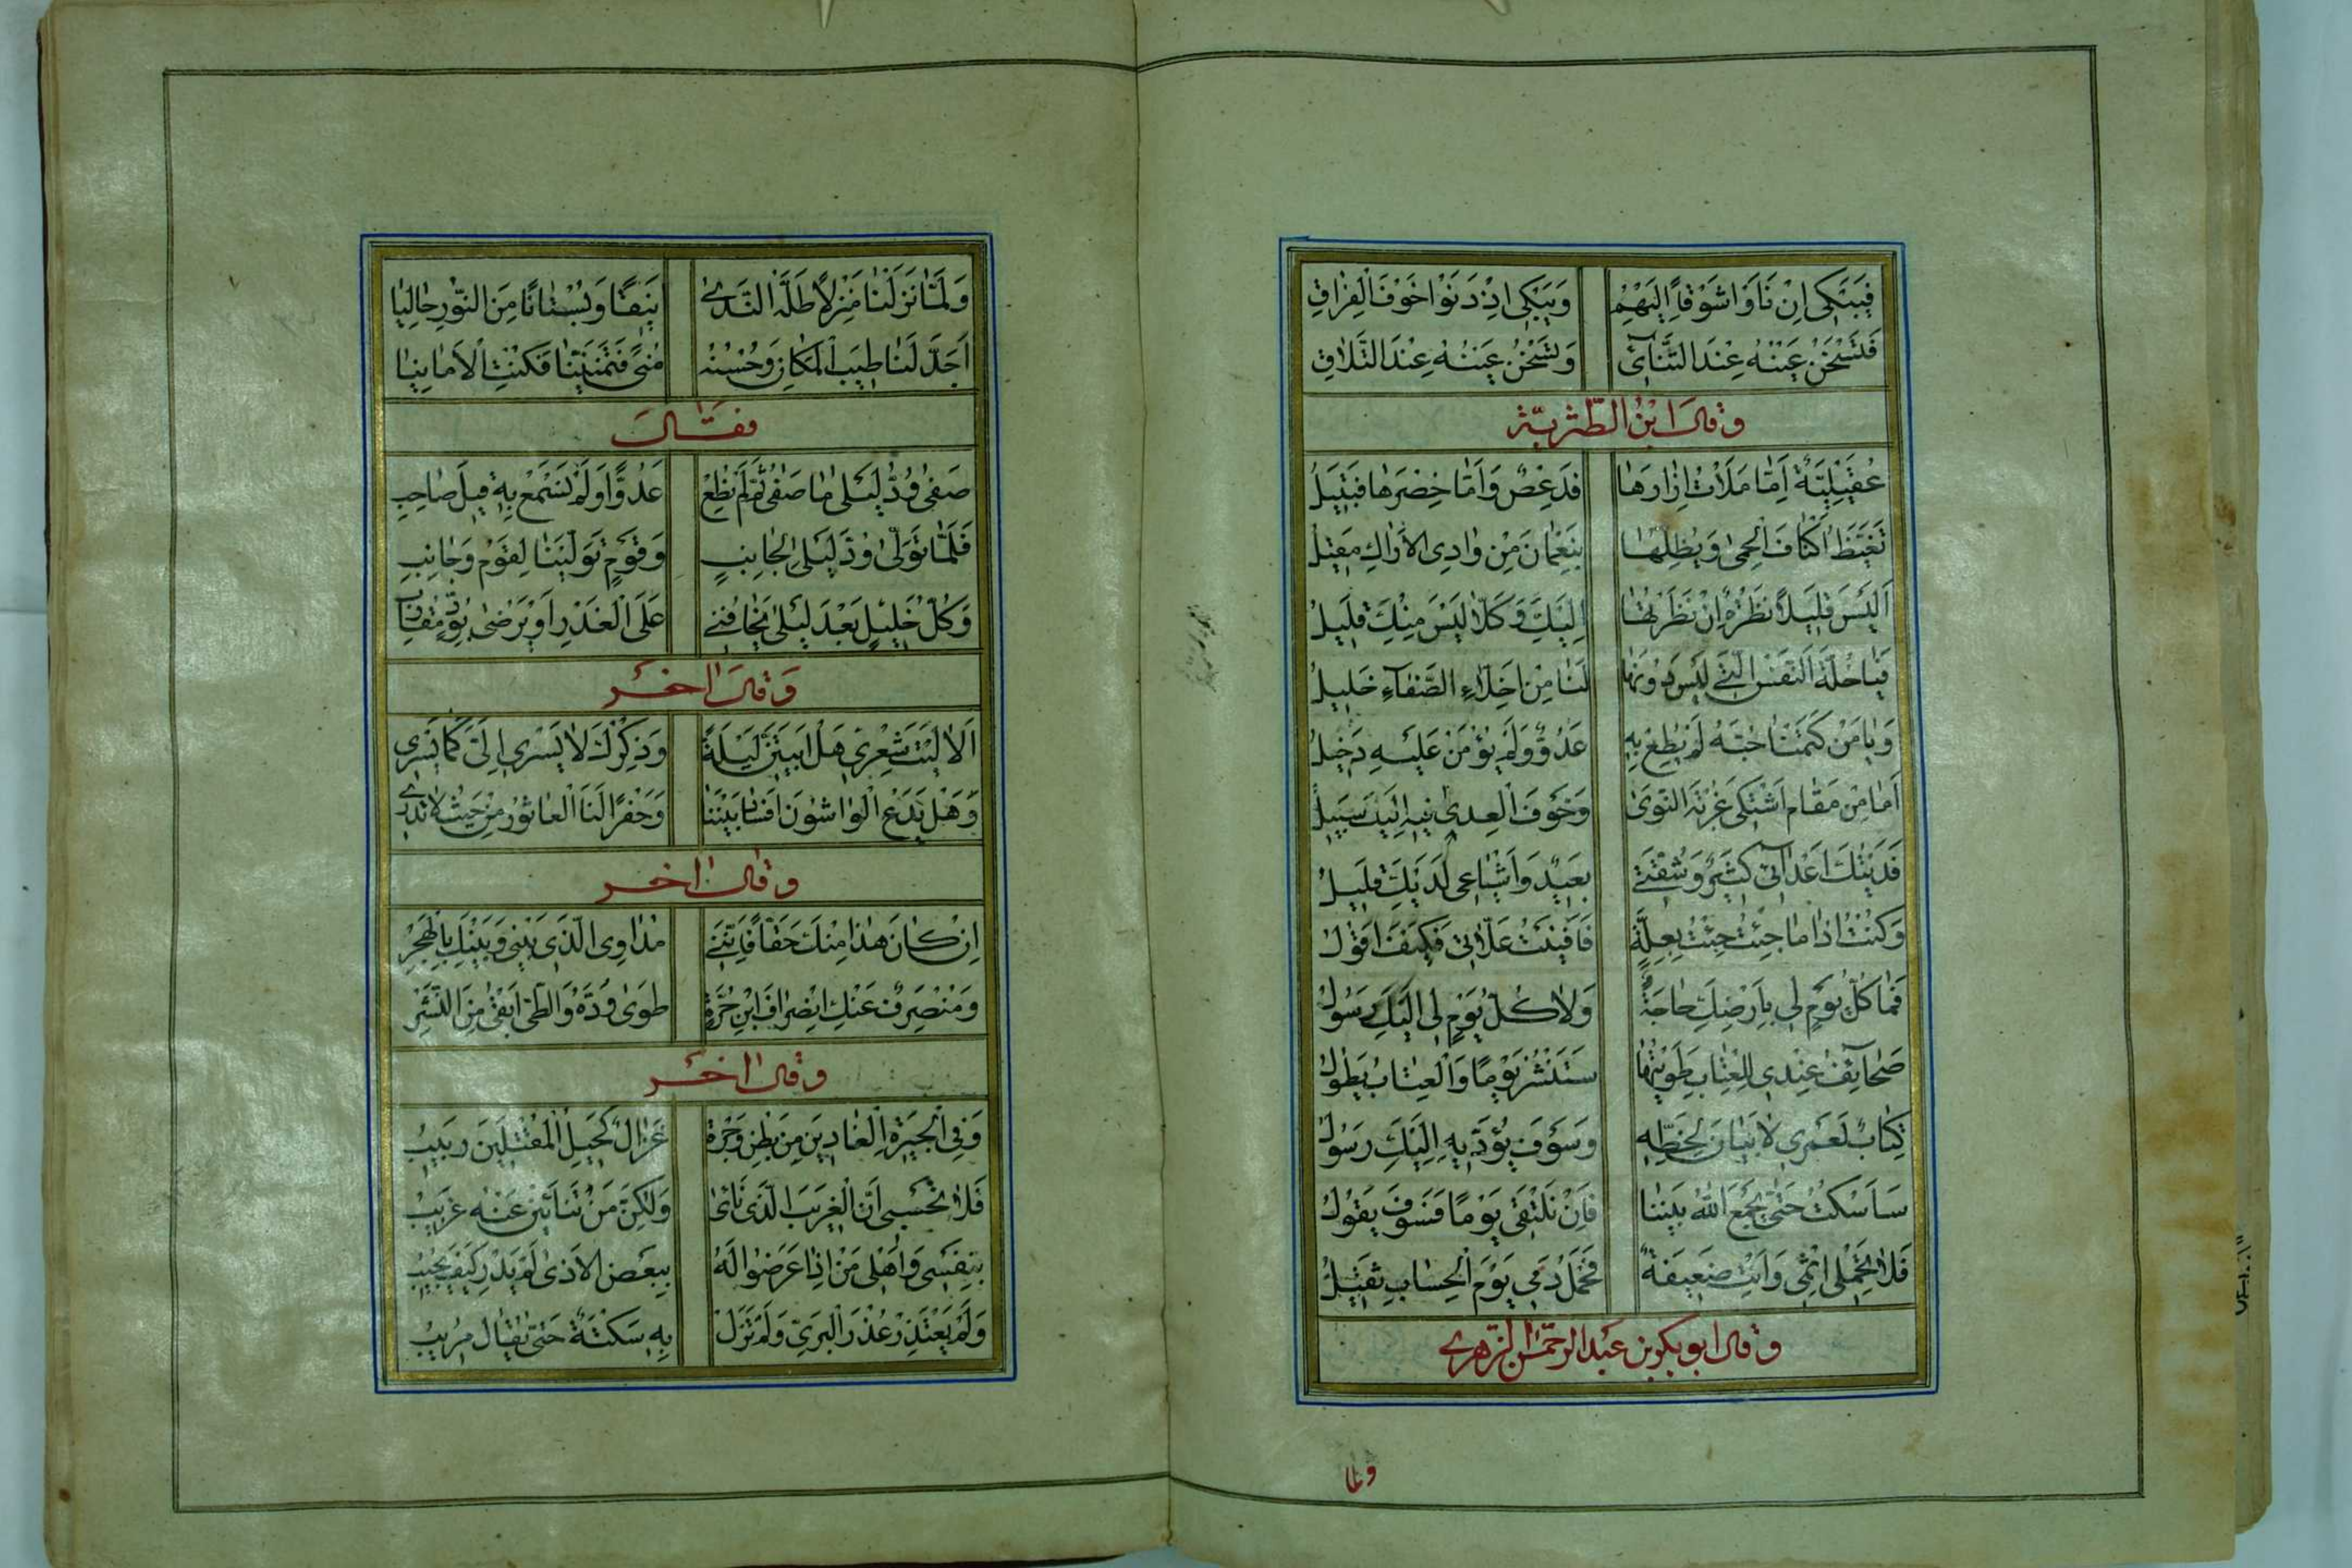 فَيَبْكِي اِنْ نَاَوْا شَوْقًا اِلَيْهِمْ وَيَبْكِي اِنْ دَنَوْا خَوْفَ الْفِرَاقِ
فَتَسْخَنُ عَيْنُهُ عِنْدَ التَّنَائِي وَتَسْخَنُ عَيْنُهُ عِنْدَ التَّلَاقِ
وقال ابن الطّثريّة
عُقَيْلِيَّةٌ اَمَّا مَلَاثُ اِزَارِهَا فَدِعْصٌ وَاَمَّا خِصْرُهَا فَبَتِيلُ
تَقَيَّظُ اَكْنَافَ الْحِمَى وَيُظِلُّهَا بِنَعْمَانَ مِنْ وَادِي الْاَرَاكِ مَقِيلُ
اَلَيْسَ قَلِيلًا نَظْرَةٌ اِنْ نَظَرْتُهَا اِلَيْكِ وَكَلَّا لَيْسَ مِنْكِ قَلِيلُ
فَيَا خُلَّةَ النَّفْسِ الَّتِي لَيْسَ دُونَهَا لَنَا مِنْ اَخِلَّاءِ الصَّفَاءِ خَلِيلُ
وَيَا مَنْ كَتَمْنَا حُبَّهُ لَمْ يُطَعْ بِهِ عَدُوٌّ وَلَمْ يُؤْمَنْ عَلَيْهِ دَخِيلُ
اَمَا مِنْ مَقَامٍ اَشْتَكِي غُرْبَةَ النَّوَى وَخَوْفَ الْعِدَى فِيهِ اِلَيْكِ سَبِيلُ
فَدَيْتُكِ اَعْدَائِي كَثِيرٌ وَشُقَّتِي بَعِيدٌ وَاَشْيَاعِي لَدَيْكِ قَلِيلُ
وَكُنْتُ اِذَا مَا جِئْتُ جِئْتُ بِعِلَّةٍ فَاَفْنَيْتُ عِلَّاتِي فَكَيْفَ اَقُولُ
فَمَا كُلَّ يَوْمٍ لِي بِاَرْضِكِ حَاجَةٌ وَلَا كُلَّ يَوْمٍ لِي اِلَيْكِ رَسُولُ
صَحَائِفُ عِنْدِي لِلْعِتَابِ طَوَيْتُهَا سَتُنْشَرُ يَوْمًا وَالْعِتَابُ يَطُولُ
كِتَابٌ لَعَمْرِي لَا بَنَانَ يَخُطُّهُ وَسَوْفَ يُؤَدِّيهِ اِلَيْكِ رَسُولُ
سَاَسْكُتُ حَتَّى يَجْمَعَ اللهُ بَيْنَنَا فَاِنْ نَلْتَقِي يَوْمًا فَسَوْفَ يَقُولُ
فَلَا تَحْمِلِي اِثْمِي وَاَنْتِ ضَعِيفَةٌ فَحَمْلُ دَمِي يَوْمَ الْحِسَابِ ثَقِيلُ
وقال ابو بكر بن عبد الرحمن الزهري
ولما
وَلَمَّا نَزَلْنَا مَنْزِلًا طَلَّهُ النَّدَى اَنِيقًا وَبُسْتَانًا مِنَ النَّوْرِ حَالِيَا
اَجَدَّ لَنَا طِيبُ الْمَكَانِ وَحُسْنُهُ مُنًى فَتَمَنَّيْنَا فَكُنْتِ الْاَمَانِيَا
فقال
صَفَى وُدُّ لَيْلَى مَا صَفَى ثُمَّ لَمْ نُطِعْ عَدُوًّا وَلَمْ نَسْمَعْ بِهِ قِيلَ صَاحِبِ
فَلَمَّا تَوَلَّى وُدُّ لَيْلَى لِجَانِبٍ وَقَوْمٍ تَوَلَّيْنَا لِقَوْمٍ وَجَانِبِ
وَكُلُّ خَلِيلٍ بَعْدَ لَيْلَى يَخَافُنِي عَلَى الْغَدْرِ اَوْ يَرْضَى بِوُدٍّ مُقَارِبِ
وقال اخر
اَلَا لَيْتَ شِعْرِي هَلْ اَبِيتَنَّ لَيْلَةً وَذِكْرُكِ لَا يَسْرِي اِلَيَّ كَمَا يَسْرِي
وَهَلْ يَدَعُ الْوَاشُونَ اِفْسَادَ بَيْنِنَا وَحَفْرًا لَنَا الْعَاثُورَ مِنْ حَيْثُ لَا نَدْرِي
وقال اخر
اِنْ كَانَ هَذَا مِنْكِ حَقًّا فَاِنَّنِي مُدَاوِي الَّذِي بَيْنِي وَبَيْنَكِ بِالْهَجْرِ
وَمُنْصَرِفٌ عَنْكِ انْصِرَافَ ابْنِ حُرَّةٍ طَوَى وُدَّهُ وَالطَّيُّ اَبْقَى مِنَ النَّشْرِ
وقال اخر
وَفِي الْجِيرَةِ الْغَادِينَ مِنْ بَطْنِ وَجْرَةٍ غَزَالٌ كَحِيلُ الْمُقْلَتَيْنِ رَبِيبُ
فَلَا تَحْسَبِي اَنَّ الْغَرِيبَ الَّذِي نَاَى وَلَكِنَّ مَنْ تَنْاَيْنَ عَنْهُ غَرِيبُ
بِنَفْسِي وَاَهْلِي مَنْ اِذَا عَرَضُوا لَهُ بِبَعْضِ الْاَذَى لَمْ يَدْرِ كَيْفَ يُجِيبُ
وَلَمْ يَعْتَذِرْ عُذْرَ الْبَرِيِّ وَلَمْ تَزَلْ بِهِ سَكْتَةٌ حَتَّى يُقَالَ مُرِيبُ